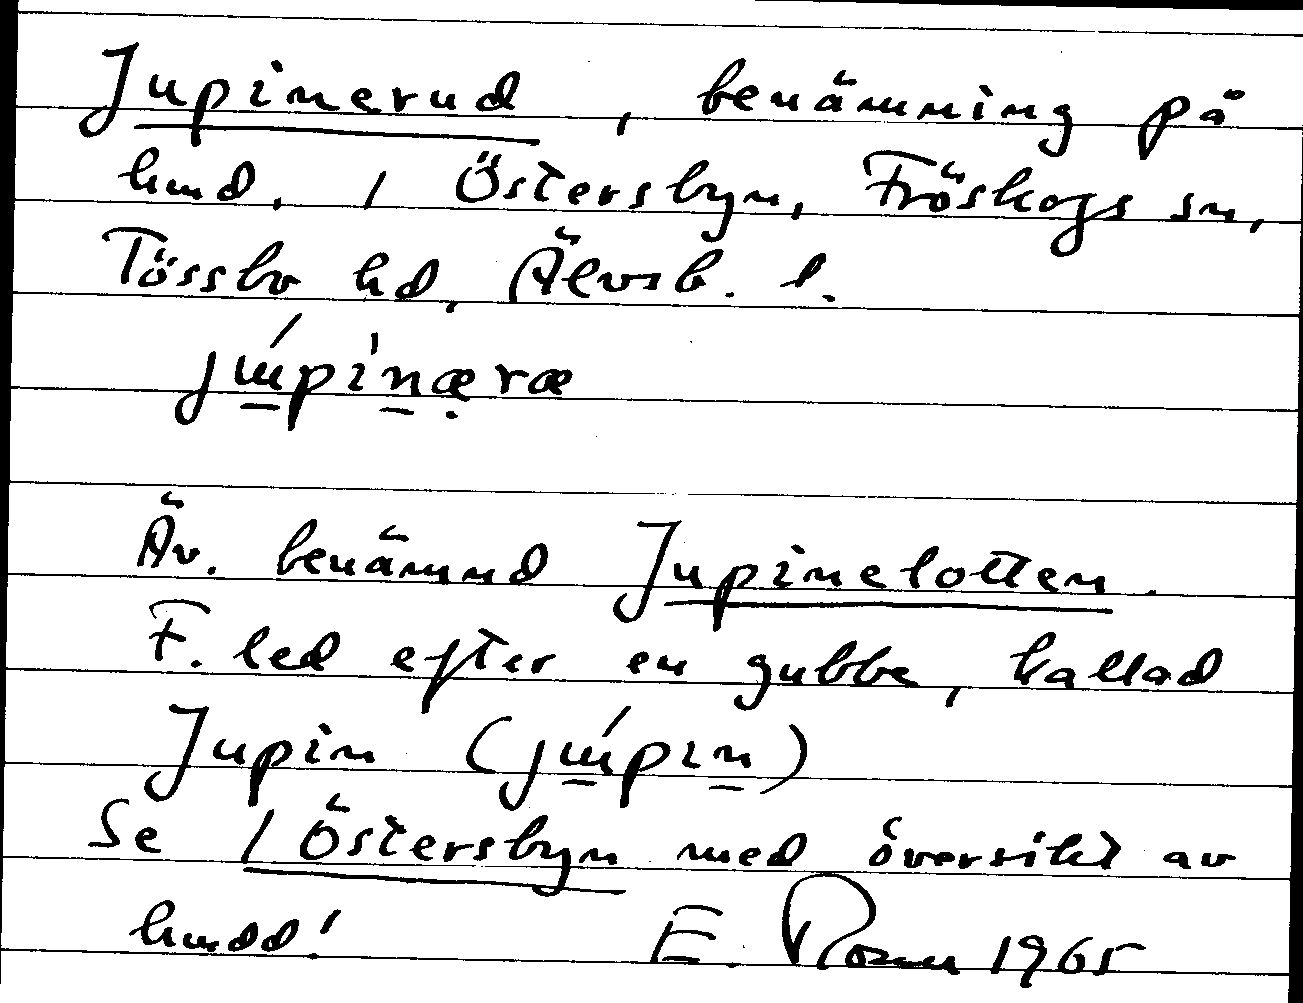 Jupinerud, benämning på
hmd, 1 Östersbyn, Fröskogs sn,
Tössbo hd, Älvsb. l.
Äv. benämnd Jupinelotten.
F. led efter en gubbe, kallad
Jupin (júpin)
Se 1 Östersbyn med översikt av
hmdd! E. 1965